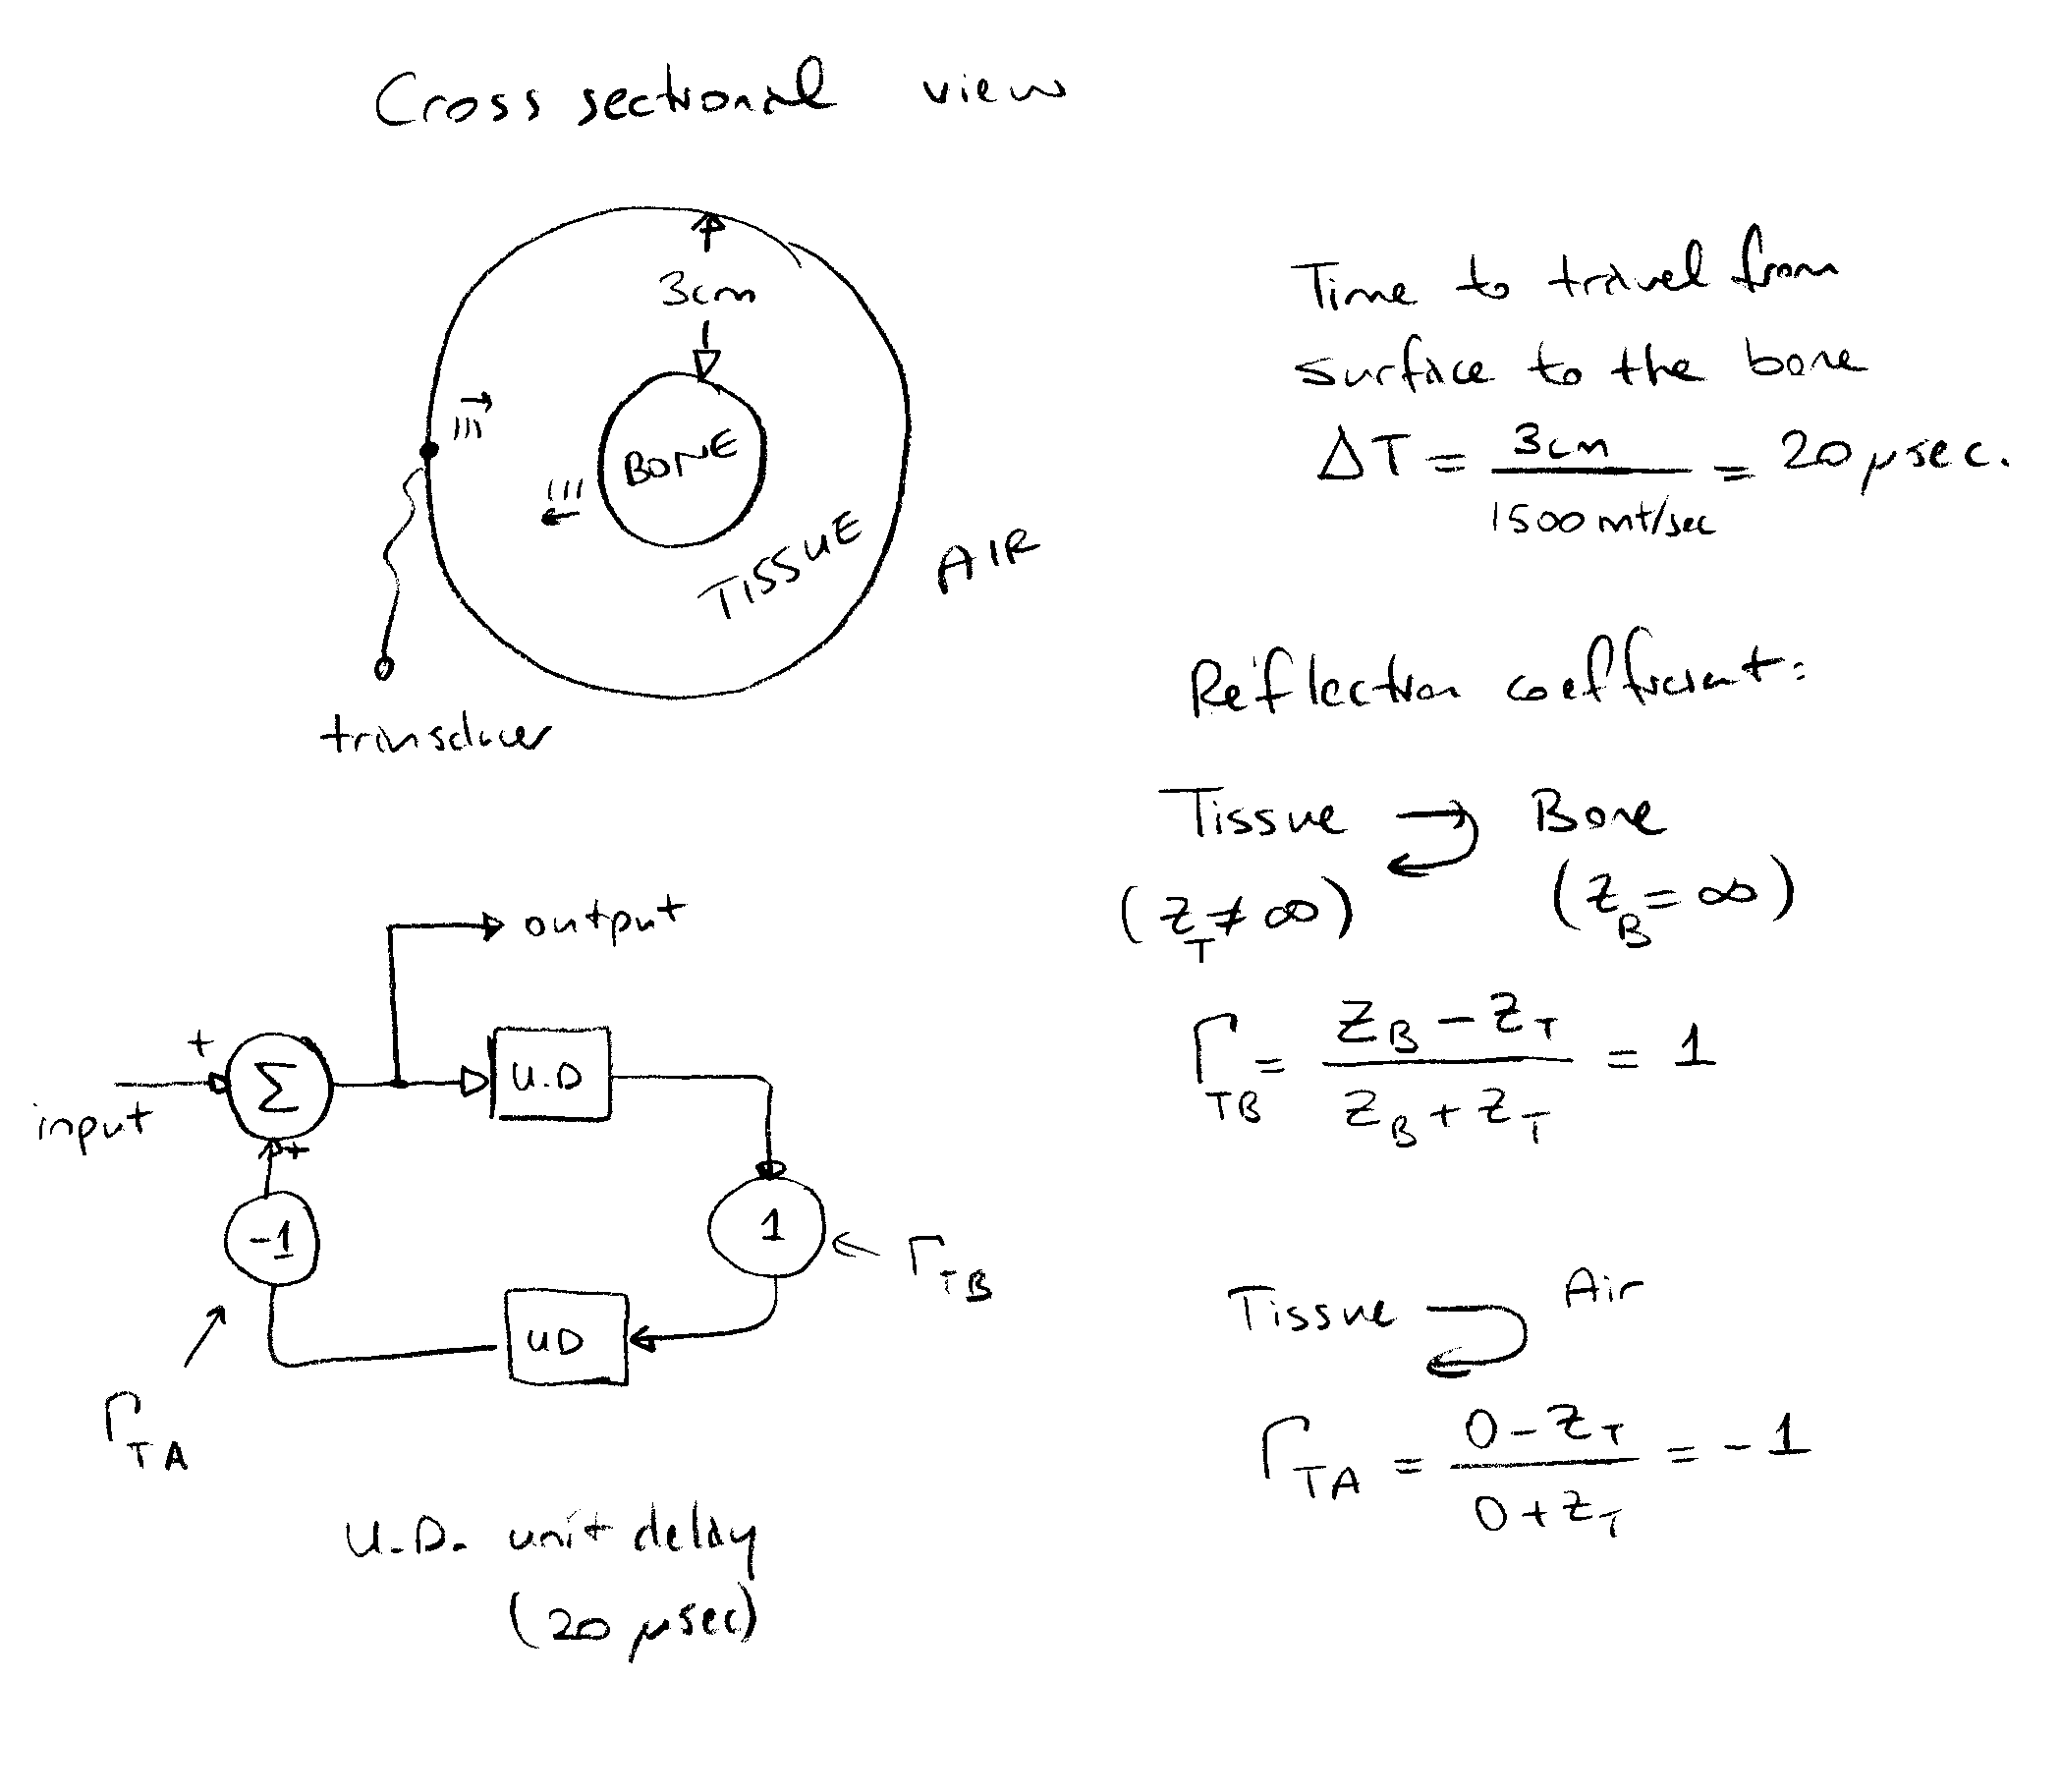 Cross sectional view
3cm
BONE
TISSUE
AIR
transducer
Time to travel from
surface to the bone
ΔT = 3cm / 1500 mt/sec = 20 μsec.
Reflection coefficient:
Tissue Bone
(Z_T ≠ ∞) (Z_B = ∞)
Γ_TB = (Z_B - Z_T) / (Z_B + Z_T) = 1
Tissue Air
Γ_TA = (0 - Z_T) / (0 + Z_T) = -1
output
+
input
Σ
U.D
+
-1
1
Γ_TB
UD
Γ_TA
U.D. unit delay
(20 μsec)